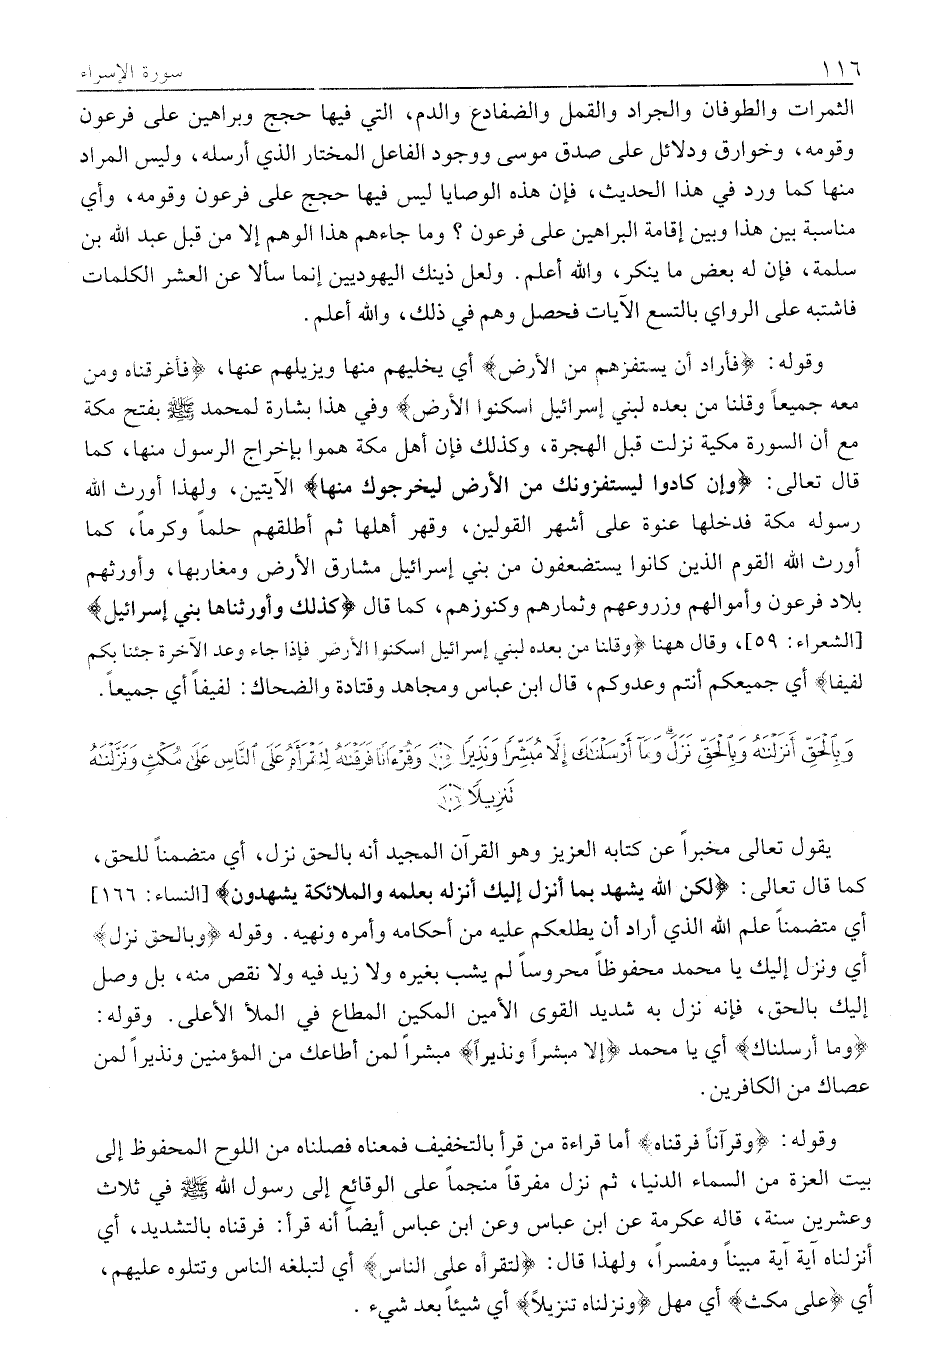 ١١٦
سورة الإسراء
الثمرات والطوفان والجراد والقمل والضفادع والدم، التي فيها حجج وبراهين على فرعون
وقومه، وخوارق ودلائل على صدق موسى ووجود الفاعل المختار الذي أرسله، وليس المراد
منها كما ورد في هذا الحديث، فإن هذه الوصايا ليس فيها حجج على فرعون وقومه، وأي
مناسبة بين هذا وبين إقامة البراهين على فرعون ؟ وما جاءهم هذا الوهم إلا من قبل عبد الله بن
سلمة، فإن له بعض ما ينكر، والله أعلم. ولعل ذينك اليهوديين إنما سألا عن العشر الكلمات
فاشتبه على الرواي بالتسع الآيات فحصل وهم في ذلك، والله أعلم.
وقوله: ﴿فأراد أن يستفزهم من الأرض﴾ أي يخليهم منها ويزيلهم عنها، ﴿فأغرقناه ومن
معه جميعاً وقلنا من بعده لبني إسرائيل اسكنوا الأرض﴾ وفي هذا بشارة لمحمد ﷺ بفتح مكة
مع أن السورة مكية نزلت قبل الهجرة، وكذلك فإن أهل مكة هموا بإخراج الرسول منها، كما
قال تعالى: ﴿وإن كادوا ليستفزونك من الأرض ليخرجوك منها﴾ الآيتين، ولهذا أورث الله
رسوله مكة فدخلها عنوة على أشهر القولين، وقهر أهلها ثم أطلقهم حلماً وكرماً، كما
أورث الله القوم الذين كانوا يستضعفون من بني إسرائيل مشارق الأرض ومغاربها، وأورثهم
بلاد فرعون وأموالهم وزروعهم وثمارهم وكنوزهم، كما قال ﴿كذلك وأورثناها بني إسرائيل﴾
[الشعراء: ٥٩]، وقال ههنا ﴿وقلنا من بعده لبني إسرائيل اسكنوا الأرض فإذا جاء وعد الآخرة جئنا بكم
لفيفا﴾ أي جميعكم أنتم وعدوكم، قال ابن عباس ومجاهد وقتادة والضحاك: لفيفاً أي جميعاً.
وَبِالْحَقِّ أَنزَلْنَاهُ وَبِالْحَقِّ نَزَلَ ۗ وَمَا أَرْسَلْنَاكَ إِلَّا مُبَشِّرًا وَنَذِيرًا ١٠٥ وَقُرْءَانًا فَرَقْنَاهُ لِتَقْرَأَهُ عَلَى النَّاسِ عَلَىٰ مُكْثٍ وَنَزَّلْنَاهُ
تَنزِيلًا ١٠٦
يقول تعالى مخبراً عن كتابه العزيز وهو القرآن المجيد أنه بالحق نزل، أي متضمناً للحق،
كما قال تعالى: ﴿لكن الله يشهد بما أنزل إليك أنزله بعلمه والملائكة يشهدون﴾ [النساء: ١٦٦]
أي متضمناً علم الله الذي أراد أن يطلعكم عليه من أحكامه وأمره ونهيه. وقوله ﴿وبالحق نزل﴾
أي ونزل إليك يا محمد محفوظاً محروساً لم يشب بغيره ولا زيد فيه ولا نقص منه، بل وصل
إليك بالحق، فإنه نزل به شديد القوى الأمين المكين المطاع في الملأ الأعلى. وقوله:
﴿وما أرسلناك﴾ أي يا محمد ﴿إلا مبشراً ونذيراً﴾ مبشراً لمن أطاعك من المؤمنين ونذيراً لمن
عصاك من الكافرين.
وقوله: ﴿وقرآناً فرقناه﴾ أما قراءة من قرأ بالتخفيف فمعناه فصلناه من اللوح المحفوظ إلى
بيت العزة من السماء الدنيا، ثم نزل مفرقاً منجماً على الوقائع إلى رسول الله ﷺ في ثلاث
وعشرين سنة، قاله عكرمة عن ابن عباس وعن ابن عباس أيضاً أنه قرأ: فرقناه بالتشديد، أي
أنزلناه آية آية مبيناً ومفسراً، ولهذا قال: ﴿لتقرأه على الناس﴾ أي لتبلغه الناس وتتلوه عليهم،
أي ﴿على مكث﴾ أي مهل ﴿ونزلناه تنزيلاً﴾ أي شيئاً بعد شيء .